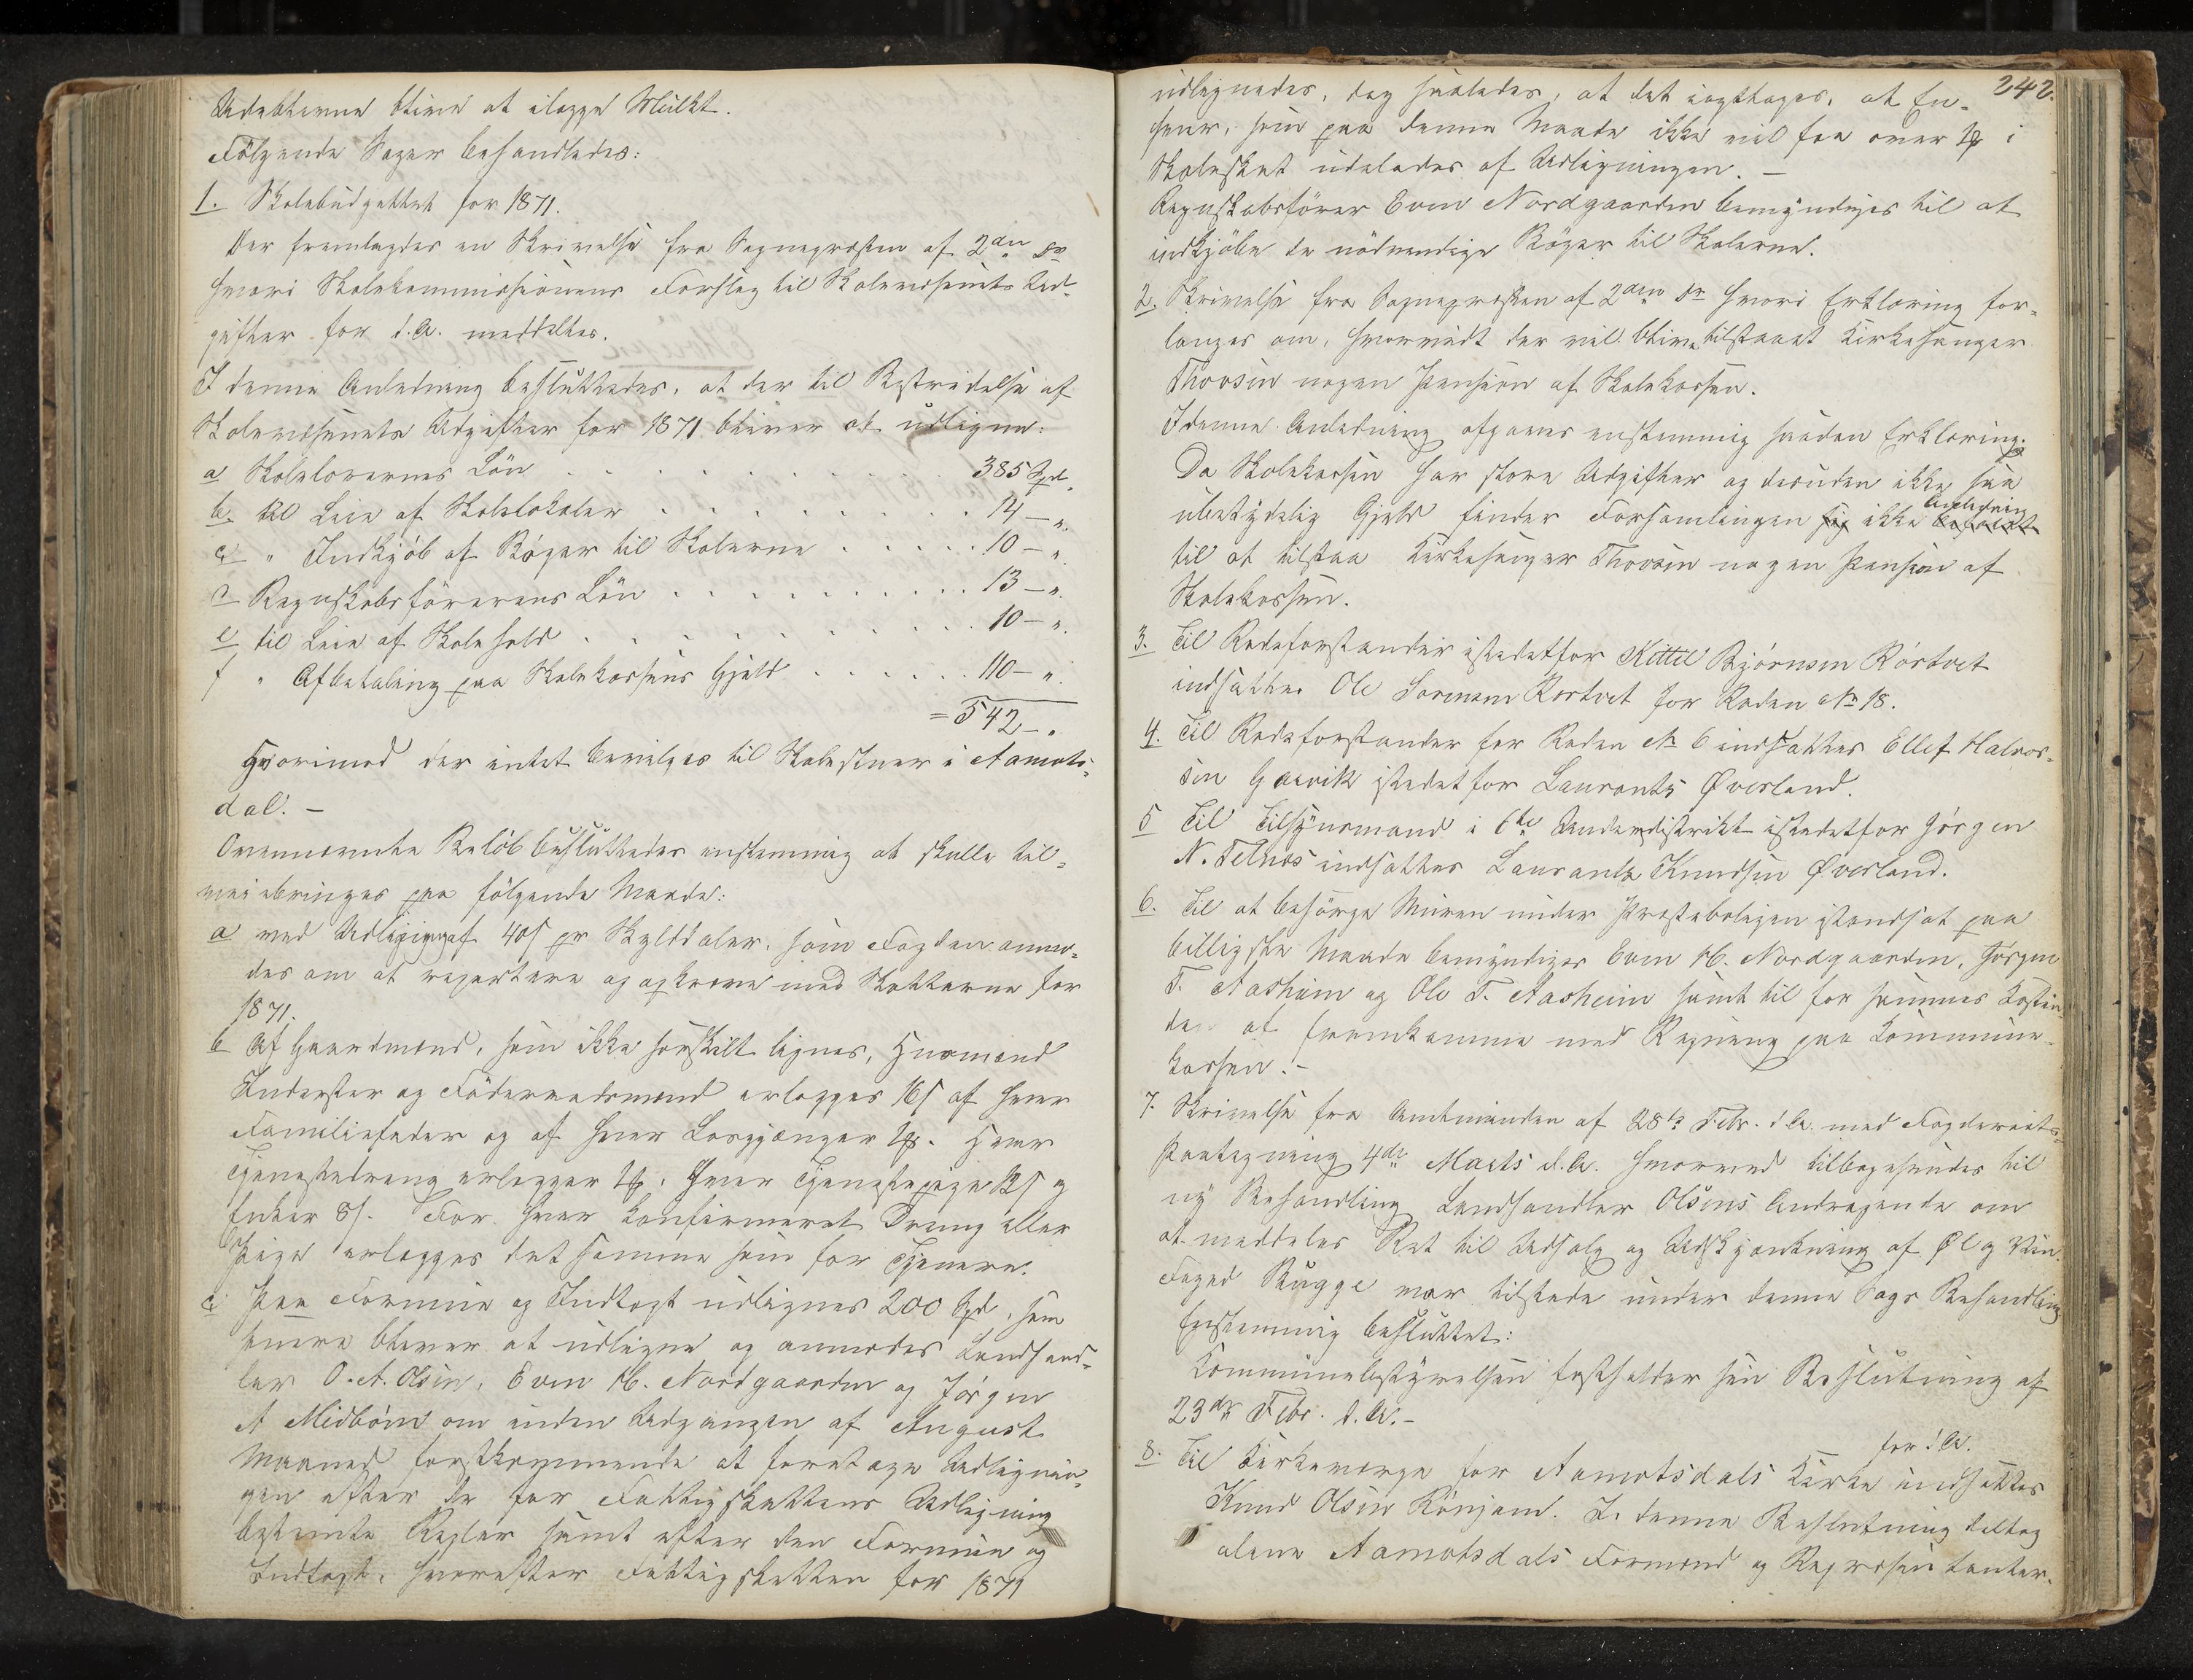 Udeblevne bliver at ilægge Mulkt.
Følgende Sager behandledes:
1. Skolebudgettet for 1871.
Der fremlagdes en Skrivelse fra Sognepræsten af 2den ds
hvori Skolekommissionens Forslag til Skolevæsenets Ud-
gifter for d.A. meddeltes.
I denne Anledning besluttedes, at der til Bestridelse af
Skolevæsenets Udgifter for 1871 bliver at udligne:
a Skolelærernes Løn . . . . . . . . 385 Spd.
b. til Leie af Skolelokaler . . . . . . . 14 – „.
c „ Indkjøb af Bøger til Skolerne . . . . . 10 – „.
d Regnskabsførerens Løn . . . . . . . . . 13 – „.
e til Leie af Skolehold . . . . . . . . 10 – „.
f „ Afbetaling paa Skolekassens Gjæld . . . . . . 110 – „.
= 542 – „
Hvorimod der intet bevilges til Skolestuer i Aamots-
dal. –
Ovennævnte Beløb besluttedes enstemmig at skulle til-
veiebringes paa følgende Maade:
a ved Udligning af 40 s pr Skylddaler, som Fogden anmo-
des om at repartere og opkræve med Skatterne for
1871.
b Af Gaardmænd, som ikke særskilt lignes, Husmænd
Inderster og Føderaadsmænd erlægges 16 s af hver
Familiefader og af hver Løsgjænger 1 ₰. Hver
Tjenestedreng erlægger 1 ₰. Hver Tjenestepige 12 s og
Enker 8 s. For hver konfirmeret Dreng eller
Pige erlægges det samme som for Tjenere.
c. Paa Formue og Indtægt udlignes 200 Spd, som
senere bliver at udligne og anmodes Landhand-
ler O. A. Olsen, Even H. Nordgaarden og Jørgen
A Midbøen om inden Udgangen af August
Maaned førstkommende at foretage Udlignin-
gen efter de for Fattigskattens Udligning
bestemte Regler samt efter den Formue og
Indtægt, hvorefter Fattigskatten for 1871
242.
udlignedes, dog saaledes, at det iagttages, at En-
hver, som paa denne Maade ikke vil faa over 1 ₰ i
Skoleskat udelades af Udligningen. –
Regnskabsfører Even Nordgaarden bemyndiges til at
indkjøbe de nødvendige Bøger til Skolerne.
2. Skrivelse fra Sognepræsten af 2den ds hvori Erklæring for-
langes om, hvorvidt der vil blive tilstaaet Kirkesanger
Thovsen nogen Pension af Skolekassen.
I denne Anledning afgaves enstemmig saadan Erklæring:
Da Skolekassen har store Udgifter og desuden ikke saa
ubetydelig Gjæld finder Forsamlingen sig ikke Anledning
til at tilstaa Kirkesanger Thovsen nogen Pension af
Skolekassen.
3. Til Rodeforstander istedetfor Kittil Bjørnsen Rørtvet
indsattes Ole Sørensen Rørtvet for Roden No 18.
4. Til Rodeforstander for Roden No 6 indsattes Ellef Halvor-
sen Gaarvik istedetfor Laurants Øverland.
5 Til Tilsynsmand i 6te Underdistrikt istedetfor Jørgen
N. Telnæs indsattes Laurants Knudsen Øverland.
6. Til at besørge Muren under Præsteboligen istandsat paa
billigste Maade bemyndiges Even H. Nordgaarden, Jørgen
T. Aasheim og Ole T. Aasheim samt til for samme Kostn-
der at fremkomme med Regning paa Kommune-
kassen. –
7. Skrivelse fra Amtmanden af 28de Febr. d.A. med Fogderiets
Paategning 4de Marts d.A. hvorved tilbagesendes til
ny Behandling Landhandler Olsens Andragende om
at meddeles Ret til Udsalg og Udskjænkning af Øl og Vin.
Foged Rugge var tilstede under denne Sags Behandling.
Enstemmig besluttet:
Kommunebestyrelsen fastholder sin Beslutning af
23de Febr. d.A. –
for d.A.
8. Til Kirkeværge for Aamotsdals Kirke indsattes
Knud Olsen Rønjom. I denne Beslutning deltog
alene Aamotsdals Formænd og Repræsentanter.